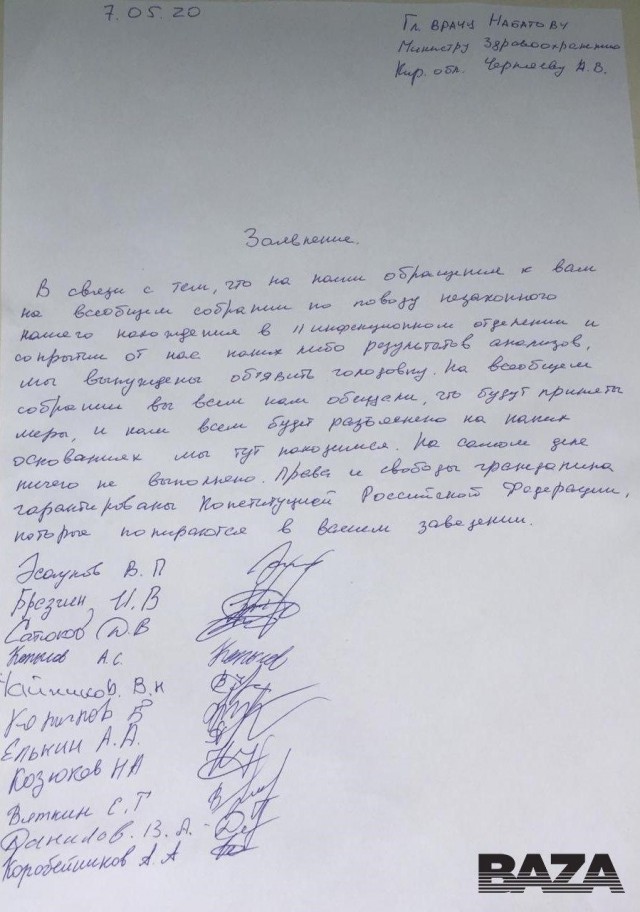 7.05.20
Гл врачу Набатову
Министру Здравоохранению
Кир. обл. Черняеву А.В.
Заявление.
В связи с тем, что на наши обращения к вам
на всеобщем собрании по поводу незаконного
нашего нахождения в II инфекционном отделении и
сокрытии от нас каких либо результатов анализов,
мы вынуждены объявить голодовку. На всеобщем
собрании вы всем нам обещали, что будут приняты
меры, и нам всем будет разъяснено на каких
основаниях мы тут находимся. На самом деле
ничего не выполнено. Права и свободы гражданина
гарантированы Конституцией Российской Федерации,
которые попираются в вашем заведении.
В. П
Брезгин, И. В
Сатюков Д. В
Копылов А. С. Копылов
Чайников. В. Н
В
Елькин А. А.
Козюков НА
Вяткин С. Г
Данилов. В. А.
Коробейников А. А
BAZA